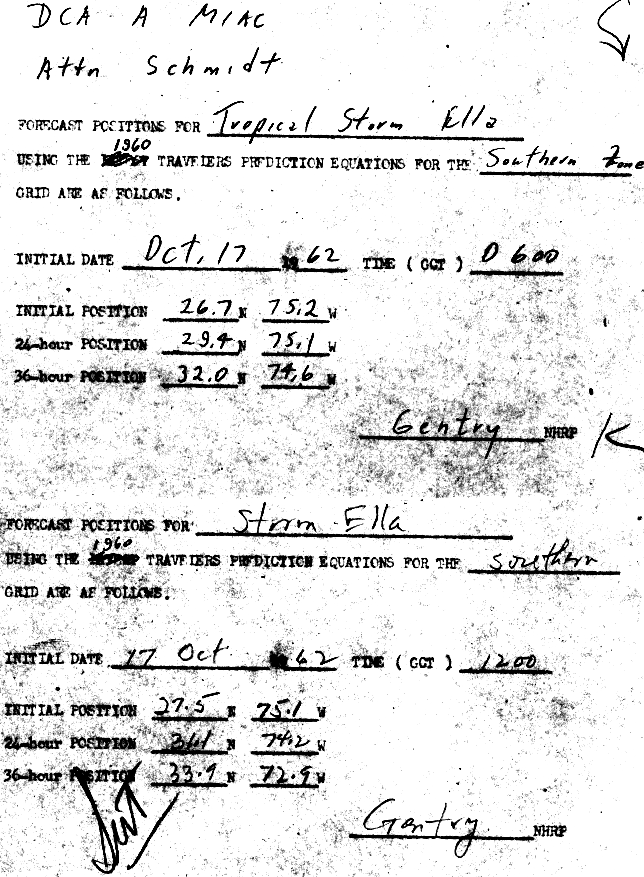 DCA A MIAC
Attn Schmidt
FORECAST POSITIONS FOR Tropical Storm Ella
1960
USING THE TRAVELERS PREDICTION EQUATIONS FOR THE Southern Zone
GRID ARE AS FOLLOWS.
INITIAL DATE Oct, 17 62 TIME ( GCT ) 0600
INITIAL POSITION 26.7 N 75.2 W
24-hour POSITION 29.4 N 75.1 W
36-hour POSITION 32.0 N 74.6 W
Gentry NHRP
FORECAST POSITIONS FOR Storm Ella
1960
USING THE TRAVELERS PREDICTION EQUATIONS FOR THE southern
GRID ARE AS FOLLOWS.
INITIAL DATE 17 Oct 62 TIME ( GCT ) 1200
INITIAL POSITION 27.5 N 75.1 W
24-hour POSITION 31.1 N 74.2 W
36-hour POSITION 33.9 N 72.9 W
Gentry NHRP